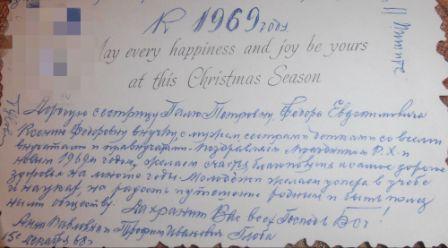 К 1969 году
May every happiness and joy be yours
at this Christmas Season
Пишите
Дорогую сестрицу Палю Петровну, Федора Евдокимовича
Ксению Федоровну внучку с мужем сестрами детками со всеми
внучатами и правнучатами. Поздравляем Праздником Р.Х. и
новым 1969м годом, желаем счастья благополучия а самое дорогое
здоровья на много годы. Молодёжи желаем успеха в учебе
и науках, на радость родным и быть полез
ными обществу.
Да хранит Вас всех Господь Бог!
Анна Павловна и Трофим Иванович Глоба
15 декабря 68г.